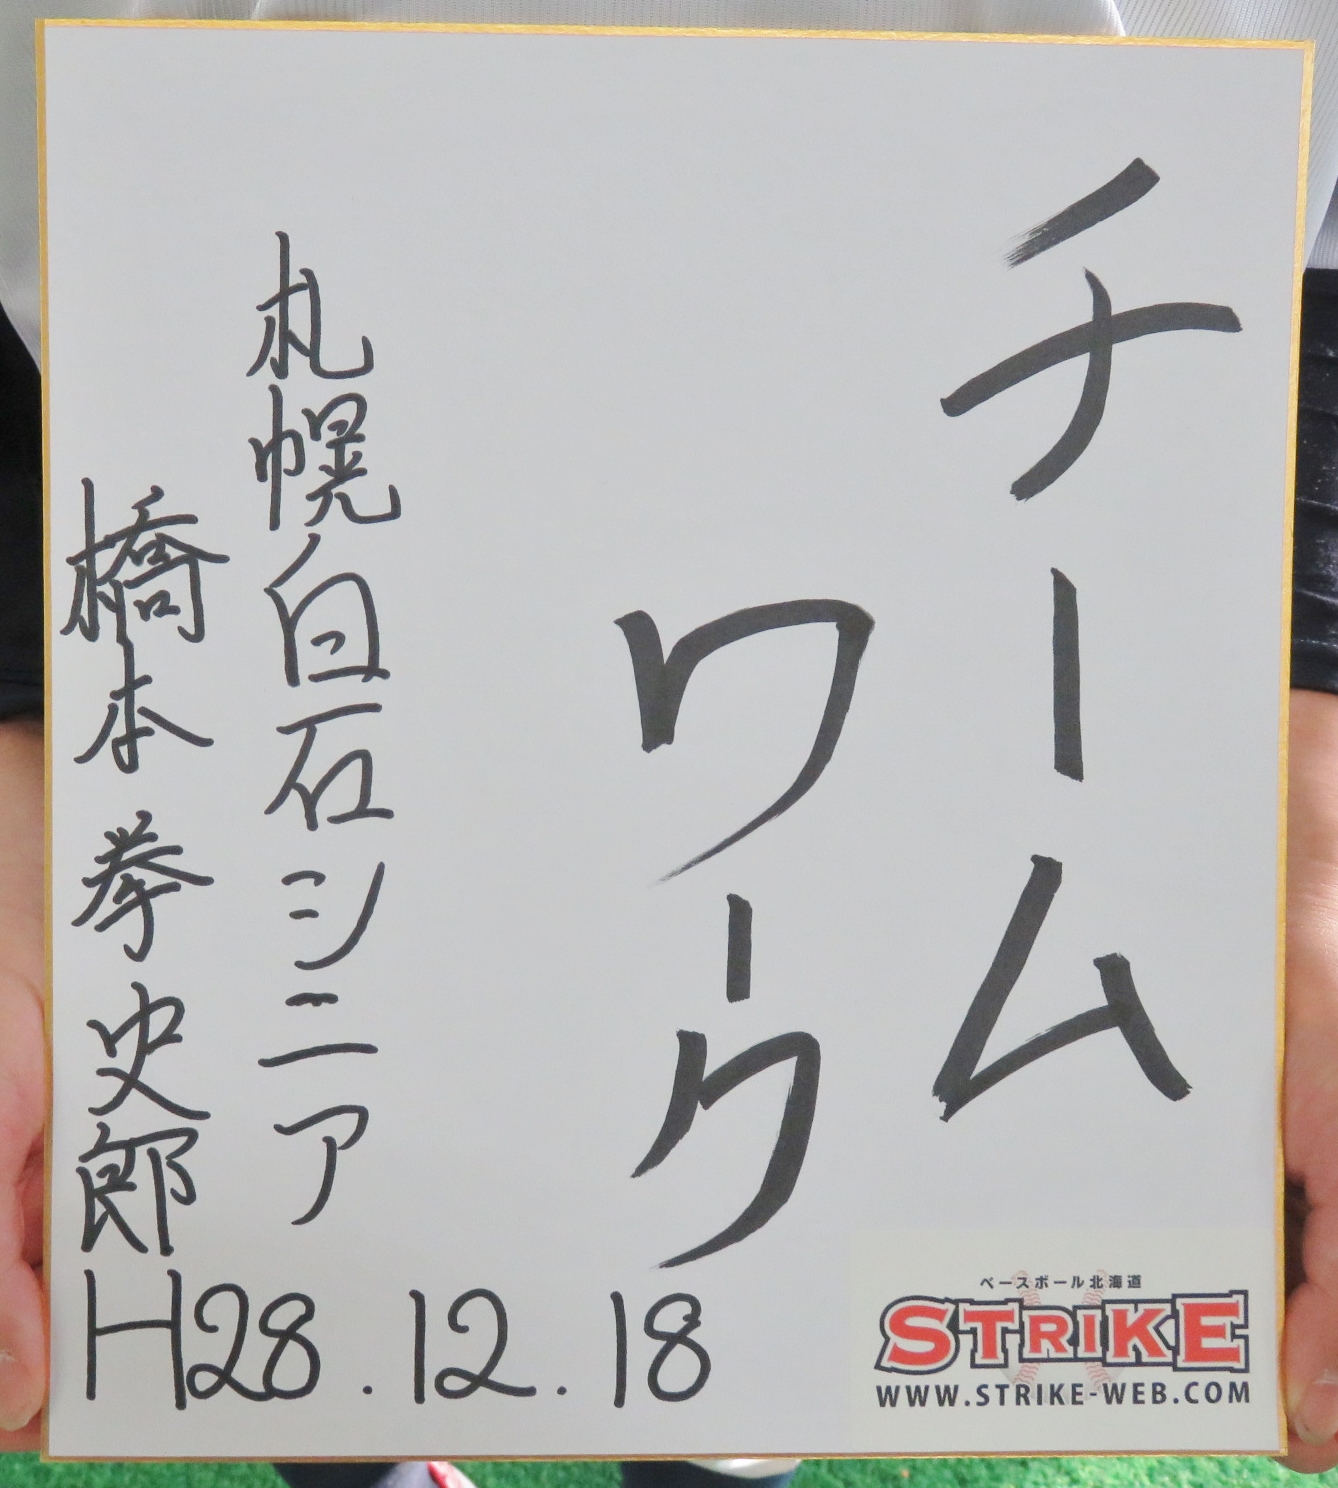 チーム
ワーク
札幌白石シニア
橋本拳史郎
H28.12.18
ベースボール北海道
STRIKE
WWW.STRIKE-WEB.COM